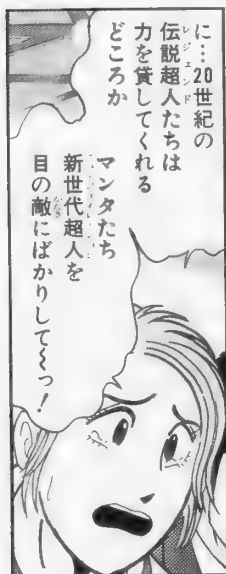 に…20世紀の
伝説超人たちは
レジェンド
力を貸してくれる
どころか
マンタたち
新世代超人を
目の敵にばかりして〜っ！
かたき